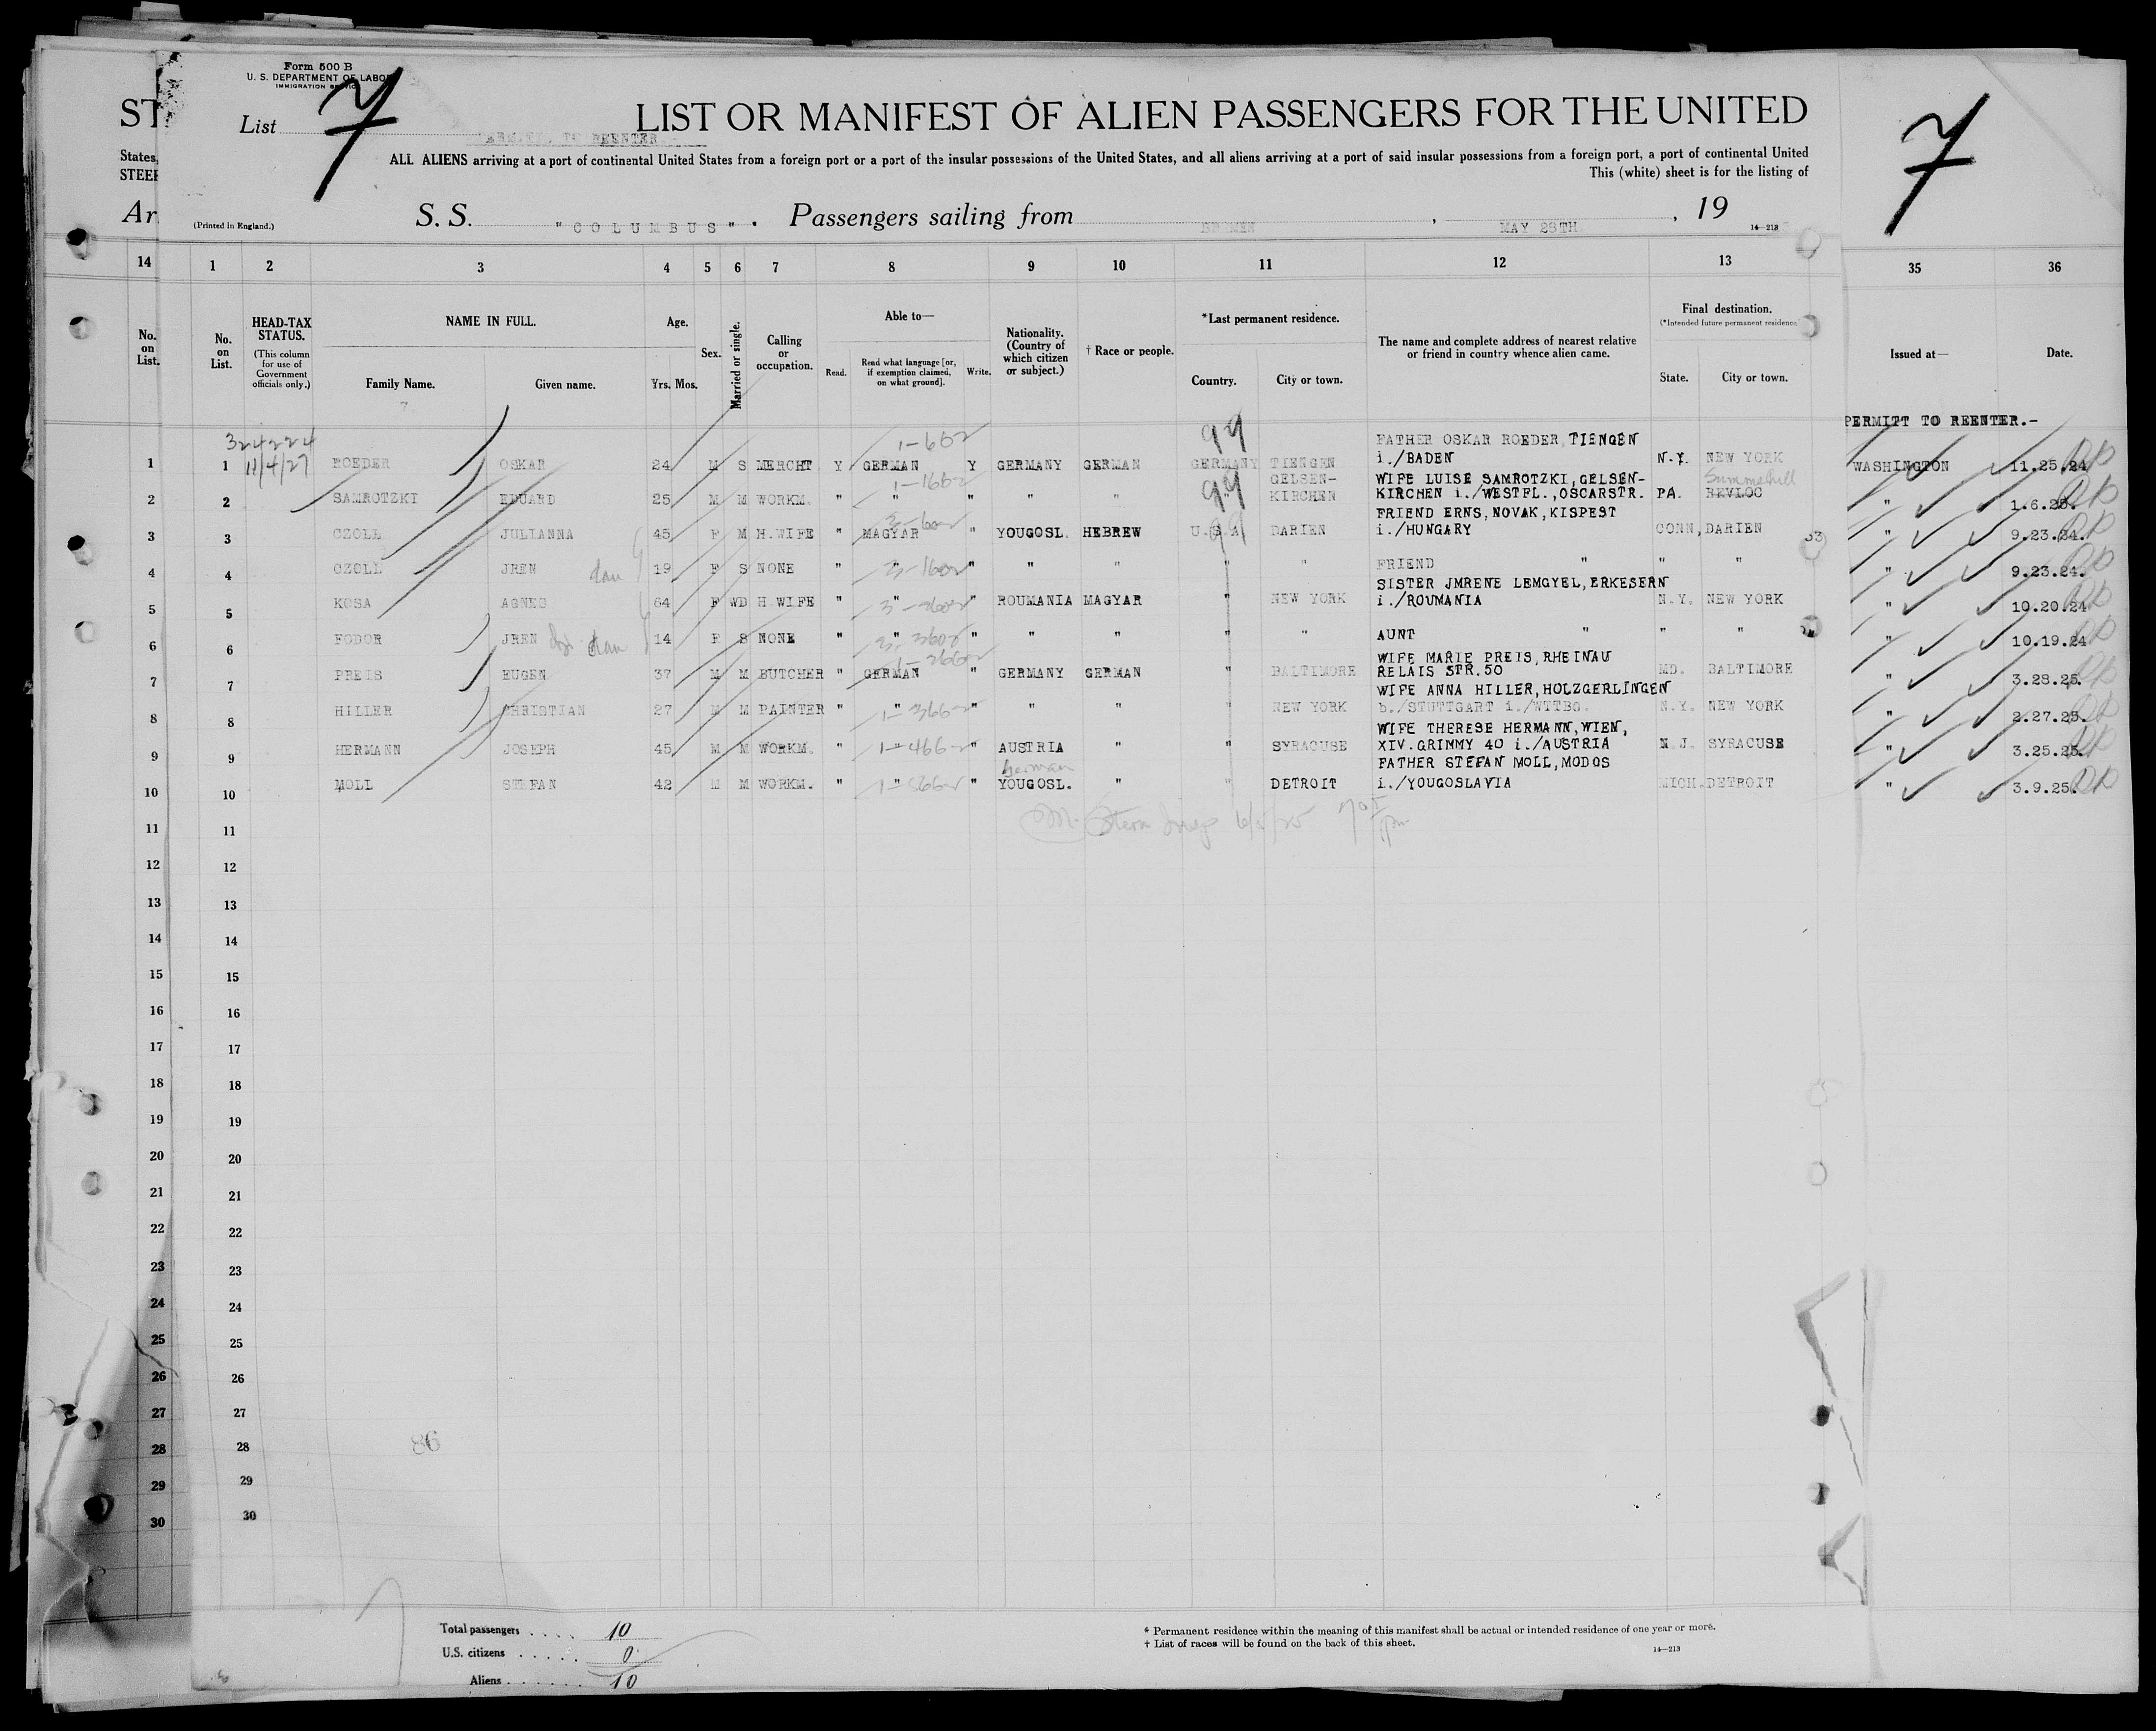 Form 500 B
U. S. DEPARTMENT OF LABOR
IMMIGRATION SERVICE
ST
List 7
LIST OR MANIFEST OF ALIEN PASSENGERS FOR THE UNITED
7
TO REENTER
States,
STEER
ALL ALIENS arriving at a port of continental United States from a foreign port or a port of the insular possessions of the United States, and all aliens arriving at a port of said insular possessions from a foreign port, a port of continental United
This (white) sheet is for the listing of
Ar
(Printed in England.)
S. S. "COLUMBUS". Passengers sailing from BREMEN, MAY 28TH, 19
14—213
14 1 2 3 4 5 6 7 8 9 10 11 12 13 35 36
No. on List.
No. on List.
HEAD-TAX STATUS.
(This column for use of Government officials only.)
NAME IN FULL.
Family Name. Given name.
Age.
Yrs. Mos.
Sex.
Married or single.
Calling or occupation.
Able to—
Read. Read what language [or, if exemption claimed, on what ground]. Write.
Nationality. (Country of which citizen or subject.)
† Race or people.
*Last permanent residence.
Country. City or town.
The name and complete address of nearest relative or friend in country whence alien came.
Final destination.
(*Intended future permanent residence.)
State. City or town.
Issued at—
Date.
PERMITT TO REENTER.-
324224
11/4/27
99
1-662
FATHER OSKAR ROEDER, TIENGEN
1 1 ROEDER OSKAR 24 M S MERCHT Y GERMAN Y GERMANY GERMAN GERMANY TIENGEN i./BADEN N.Y. NEW YORK WASHINGTON 11.25.24
1-1662 99 GELSEN- WIFE LUISE SAMROTZKI, GELSEN- Summerhill
2 2 SAMROTZKI EDUARD 25 M M WORKM. " " " " " " KIRCHEN KIRCHEN i./WESTFL., OSCARSTR. PA. REVLOC " 1.6.25.
FRIEND ERNS, NOVAK, KISPEST
3 3 CZOLL JULIANNA 45 F M H.WIFE " MAGYAR " YOUGOSL. HEBREW U.S.A. DARIEN i./HUNGARY CONN, DARIEN " 9.23.24.
4 4 CZOLL JREN dau 19 F S NONE " " " " " " FRIEND " " " " 9.23.24.
SISTER JMRENE LEMGYEL, ERKESERN
5 5 KOSA AGNES 64 F WD H.WIFE " " " ROUMANIA MAGYAR " NEW YORK i./ROUMANIA N.Y. NEW YORK " 10.20.24
6 6 FODOR JREN dau 14 F S NONE " " " " " " " AUNT " " " " 10.19.24
WIFE MARIE PREIS, RHEINAU
7 7 PREIS EUGEN 37 M M BUTCHER " GERMAN " GERMANY GERMAN " BALTIMORE RELAIS STR.50 MD. BALTIMORE " 3.28.25.
WIFE ANNA HILLER, HOLZGERLINGEN
8 8 HILLER CHRISTIAN 27 M M PAINTER " " " " " " NEW YORK b./STUTTGART i./WTTBG. N.Y. NEW YORK " 2.27.25.
WIFE THERESE HERMANN, WIEN,
9 9 HERMANN JOSEPH 45 M M WORKM. " " " AUSTRIA " " SYRACUSE XIV.GRIMMY 40 i./AUSTRIA N.J. SYRACUSE " 3.25.25.
German FATHER STEFAN MOLL, MODOS
10 10 MOLL STEFAN 42 M M WORKM. " " " YOUGOSL. " " DETROIT i./YOUGOSLAVIA MICH. DETROIT " 3.9.25.
11 11
12 12
13 13
14 14
15 15
16 16
17 17
18 18
19 19
20 20
21 21
22 22
23 23
24 24
25 25
26 26
27 27
28 28 86
29 29
30 30
Total passengers . . . . 10
U.S. citizens . . . . . 0
Aliens . . . . . . . 10
* Permanent residence within the meaning of this manifest shall be actual or intended residence of one year or more.
† List of races will be found on the back of this sheet.
14—213